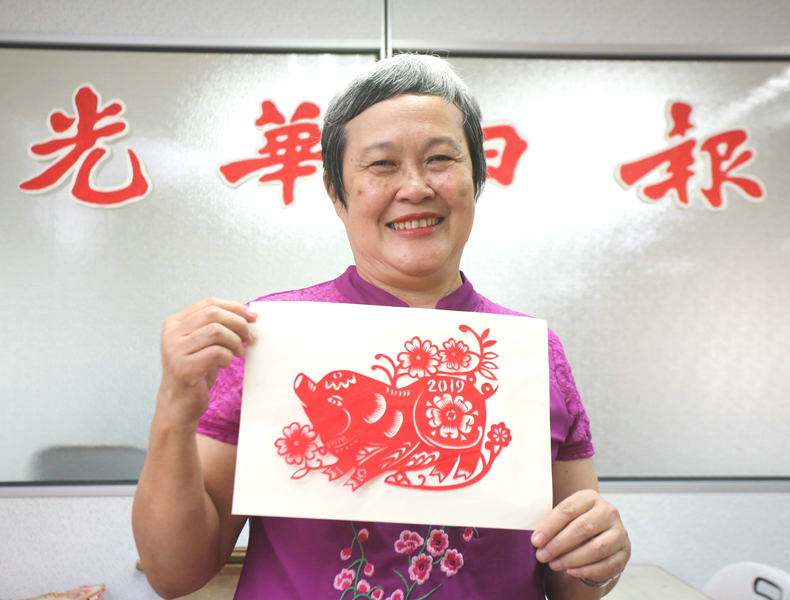 光華日報
2019